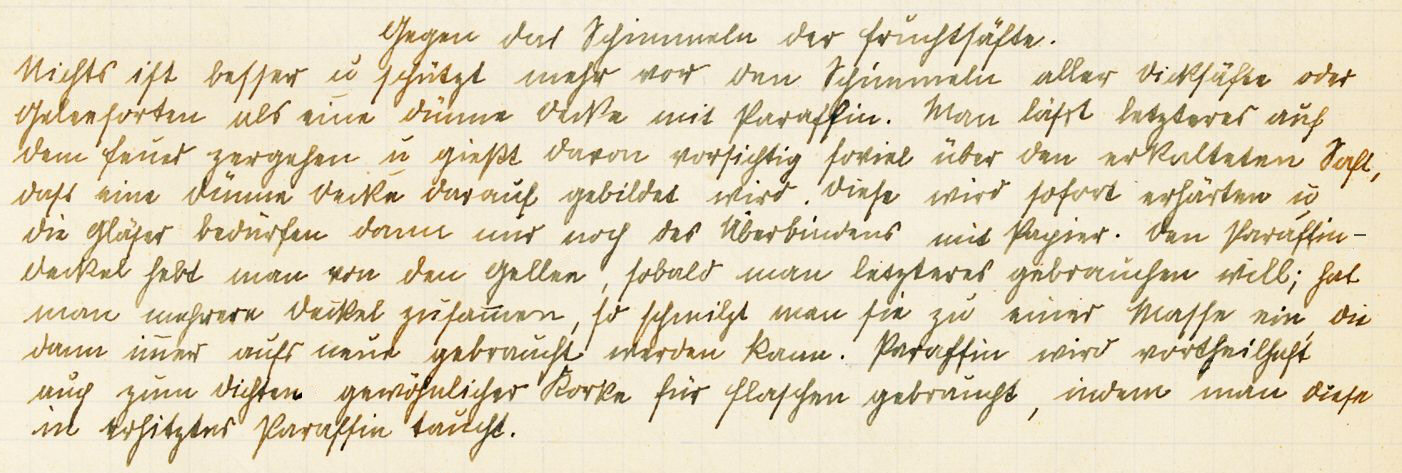 Gegen das Schimmeln der Fruchtsäfte.
Nichts ist besser u schützt mehr vor dem Schimmeln aller Dicksäfte oder
Geleesorten als eine dünne Decke mit Paraffin. Man läßt letzteres auf
dem Feuer zergehen u gießt davon vorsichtig soviel über den erkalteten Saft,
dass eine dünne Decke darauf gebildet wird. Diese wird sofort erhärten u
die Gläser bedürfen dann nur noch des Überbindens mit Papier. Den Paraffin-
deckel hebt man von den Gellee, sobald man letzteres gebrauchen will; hat
man mehrere Deckel zusam̄en, so schmilzt man sie zu einer Masse ein, die
dann im̄er aufs neue gebraucht werden kann. Paraffin wird vortheilhaft
auch zum dichten gewöhnlicher Korke für Flaschen gebraucht, indem man diese
in erhitztes Paraffin taucht.